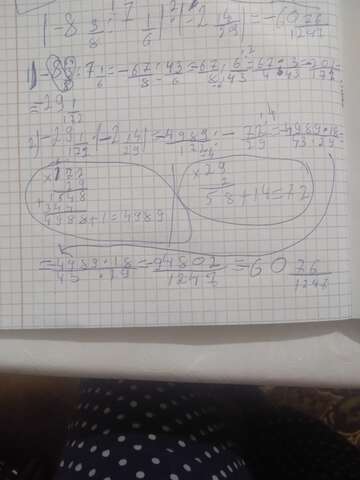 (-8 3/8 : 7 1/6) · (-2 14/29) = -60 76/1247
1) -8 3/8 : 7 1/6 = -67/8 : 43/6 = -67/8 · 6/43 = -67/4 · 3/43 = -201/172
= -29 1/172
2) -29 1/172 · (-2 14/29) = -4989/172 · -72/29 = -4989·18/43·29
× 29
2
58+14=72
+ 1548
4988+1=4989
= -4989·18/43·29 = -94802/1247 = -60 76/1247